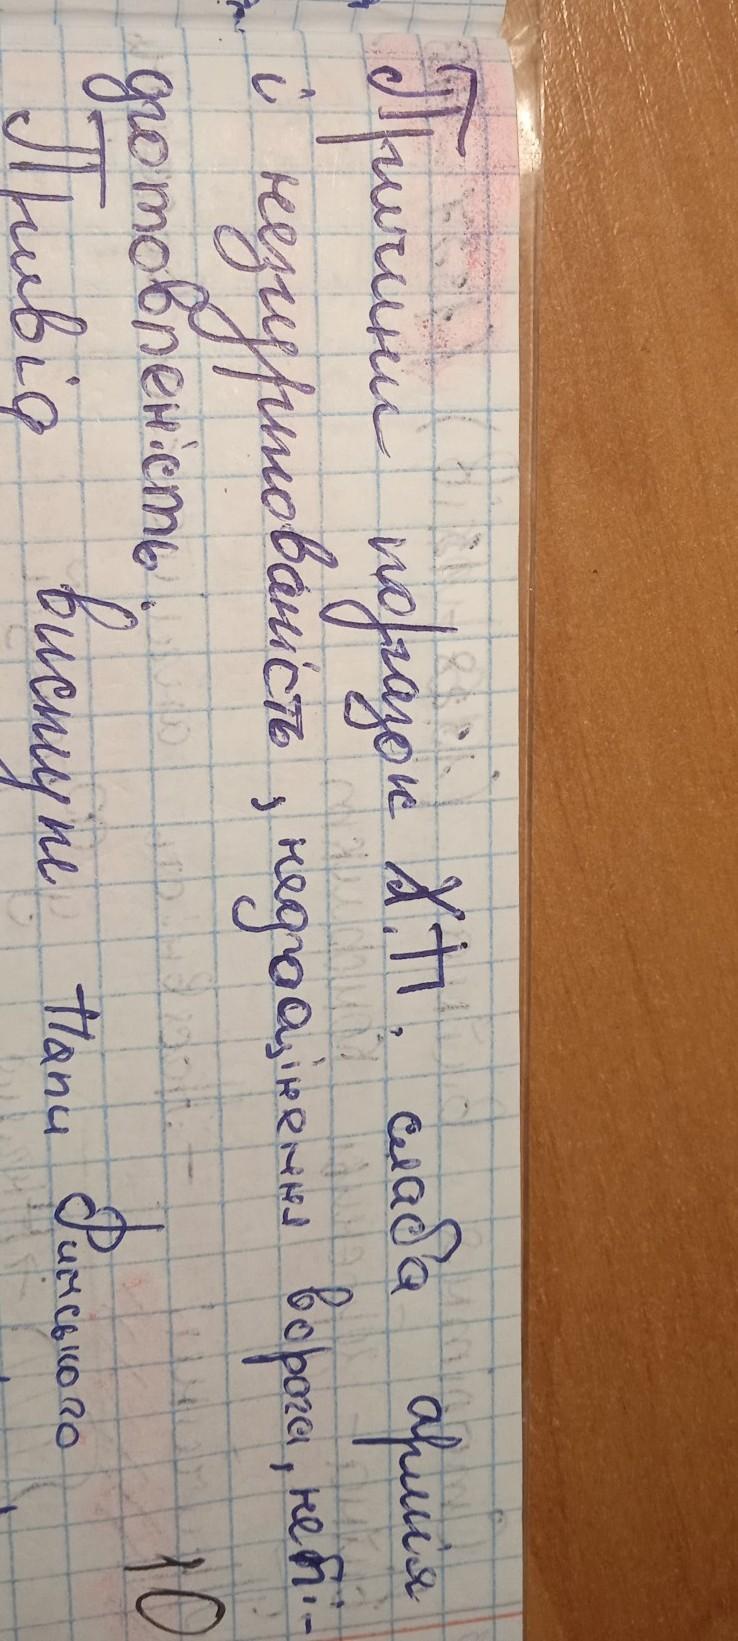 Причини поразок Х.П, слаба армія
і незгуртованість, недооцінення ворога, непі-
дготовленість.
10
Привід виступу Папи Римського